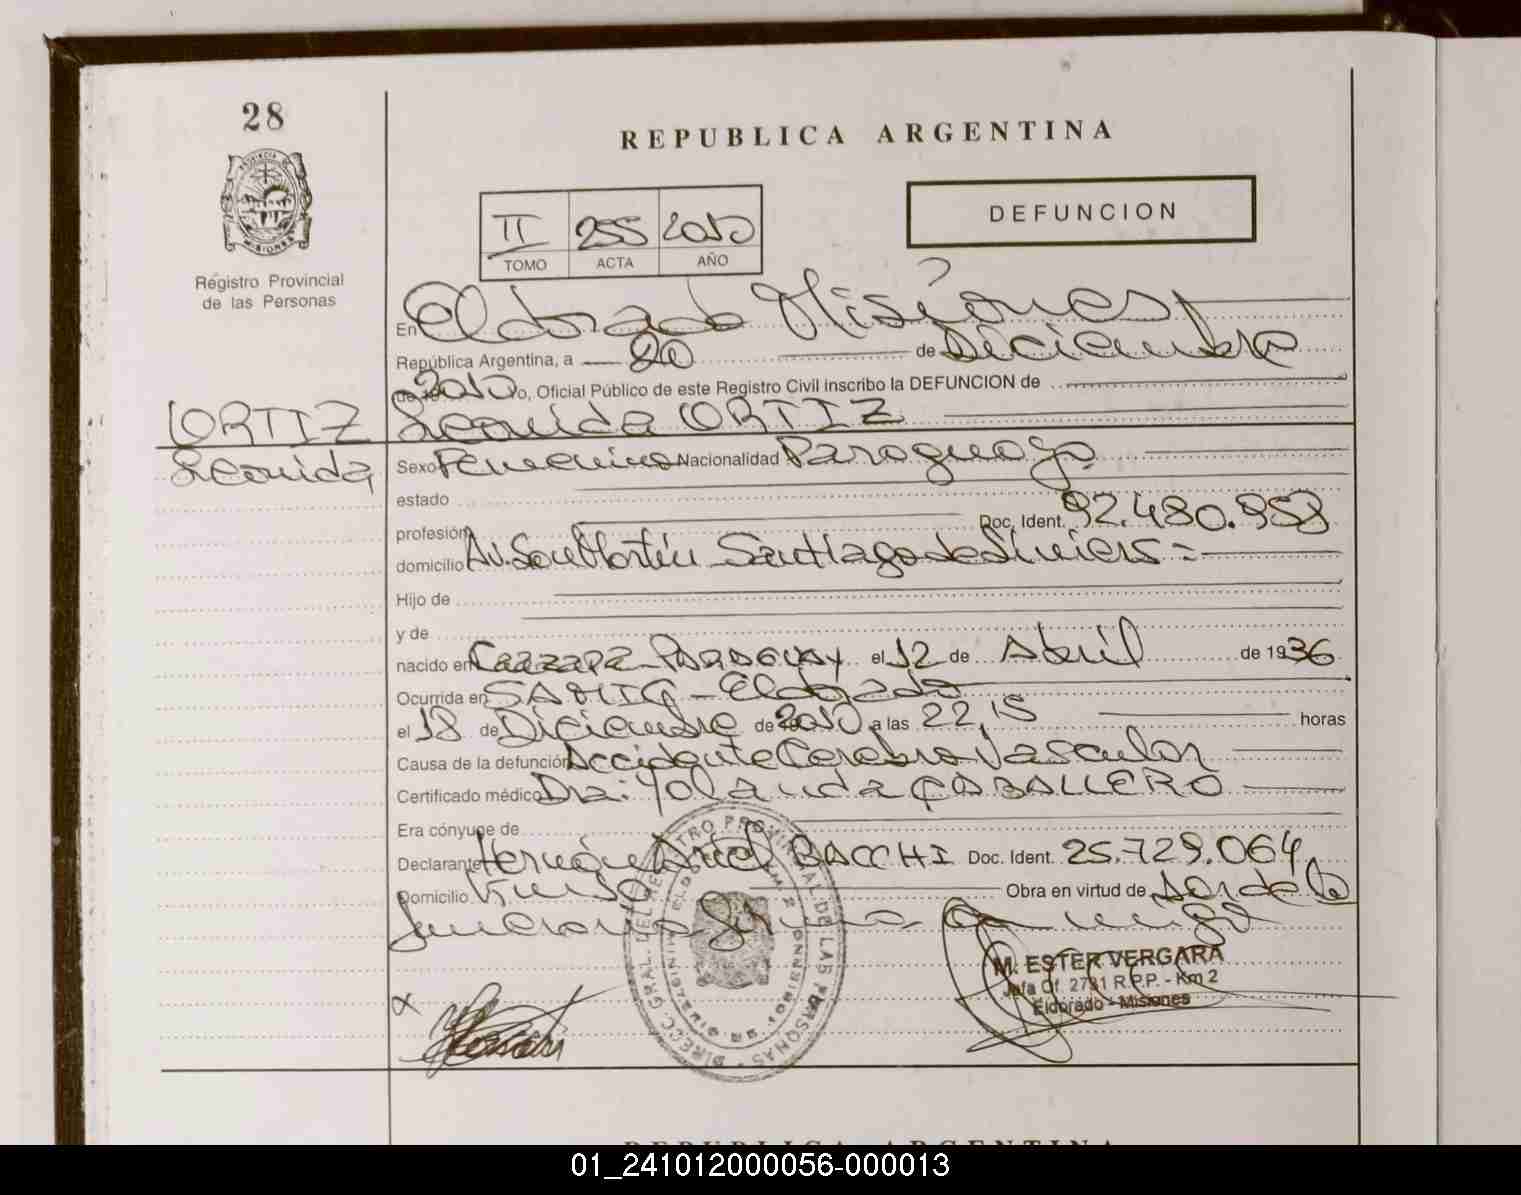 28
REPUBLICA ARGENTINA
PROVINCIA DE
MISIONES
Registro Provincial
de las Personas
DEFUNCION
II 255 2010
TOMO ACTA AÑO
En Eldorado Misiones
República Argentina, a 20 de Diciembre
de 2010 yo, Oficial Público de este Registro Civil inscribo la DEFUNCION de
ORTIZ
Leonida ORTIZ
Leonida
Sexo Femenino Nacionalidad Paraguaya
estado
profesión Doc. Ident. 92.480.958
domicilio Av. San Martín Santiago de Liniers
Hijo de
y de
nacido en Caazapá PARAGUAY el 12 de Abril de 1936
Ocurrida en SAMIC - Eldorado
el 18 de Diciembre de 2010 a las 22,15 horas
Causa de la defunción Accidente Cerebro Vascular
Certificado médico Dra: Yolanda CABALLERO
Era cónyuge de
Declarante Hernán Ariel BACCHI Doc. Ident. 25.729.064
Domicilio Obra en virtud de
M. ESTER VERGARA
Jefa Of. 2731 R.P.P. - Km 2
Eldorado - Misiones
REPUBLICA ARGENTINA
01_241012000056-000013